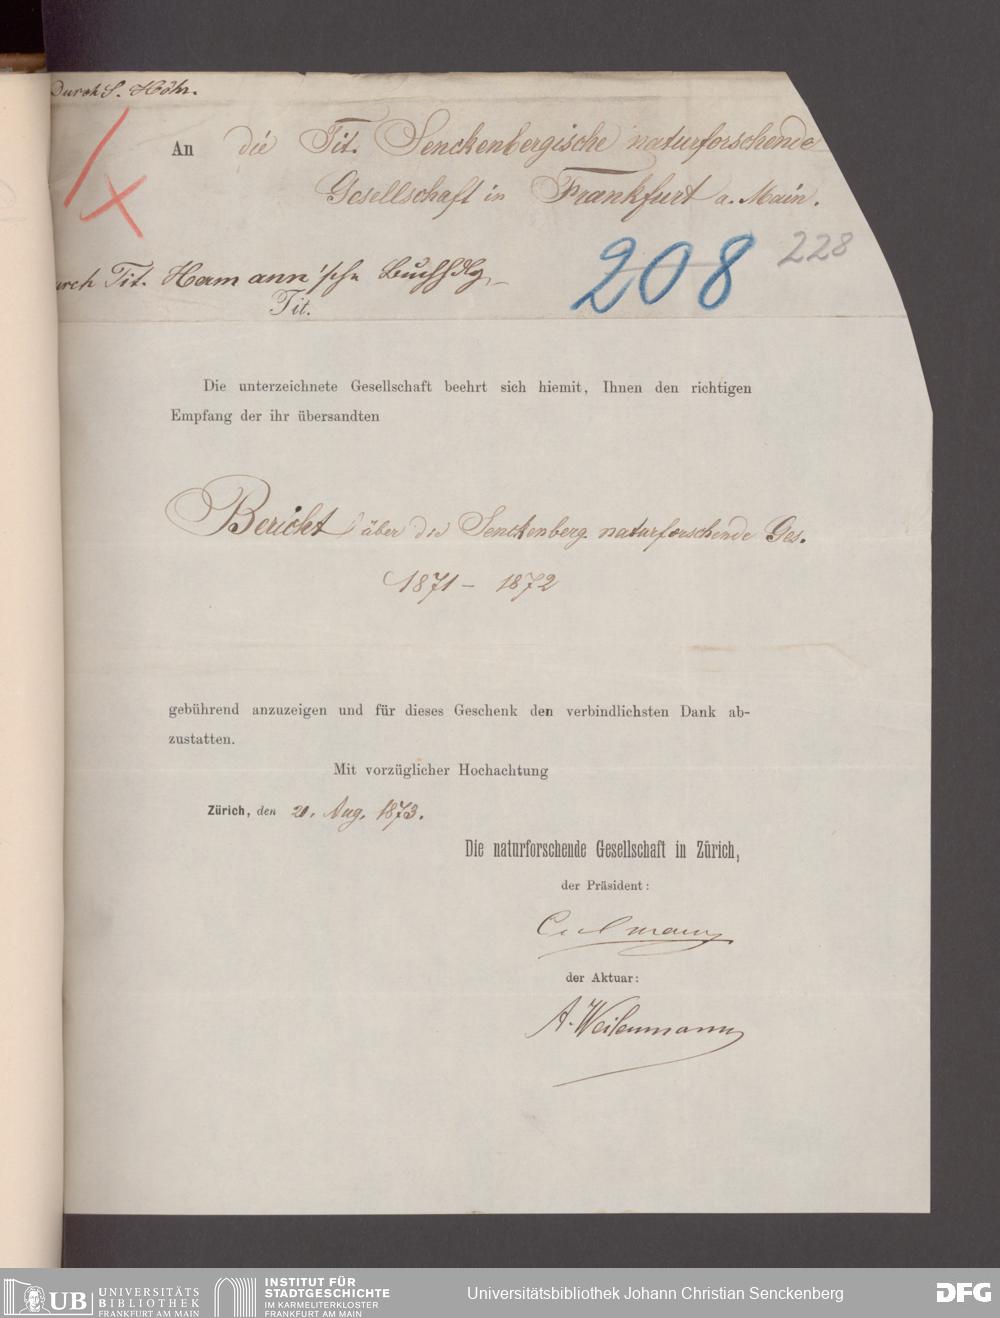 Durch S. Höhr.
An die Tit. Senckenbergische naturforschende
Gesellschaft in Frankfurt a. Main.
208 228
urch Tit. Hermann'sche Buchhdlg
Tit.
Die unterzeichnete Gesellschaft beehrt sich hiemit, Ihnen den richtigen
Empfang der ihr übersandten
Bericht über die Senckenberg. naturforschende Ges.
1871 – 1872
gebührend anzuzeigen und für dieses Geschenk den verbindlichsten Dank ab-
zustatten.
Mit vorzüglicher Hochachtung
Zürich, den 20. Aug. 1873.
Die naturforschende Gesellschaft in Zürich,
der Präsident:
der Aktuar:
A. Weilenmann
UB UNIVERSITÄTS
BIBLIOTHEK
FRANKFURT AM MAIN
INSTITUT FÜR
STADTGESCHICHTE
IM KARMELITERKLOSTER
FRANKFURT AM MAIN
Universitätsbibliothek Johann Christian Senckenberg
DFG